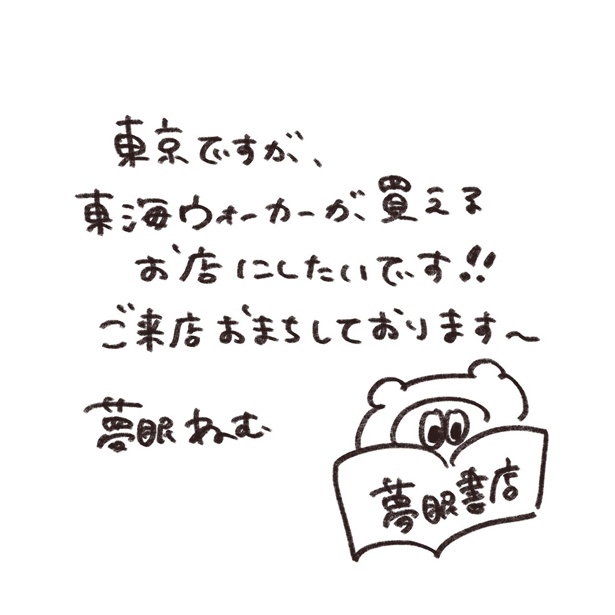 東京ですが、
東海ウォーカーが、買える
お店にしたいです!!
ご来店おまちしております〜
夢眠ねむ
夢眠書店